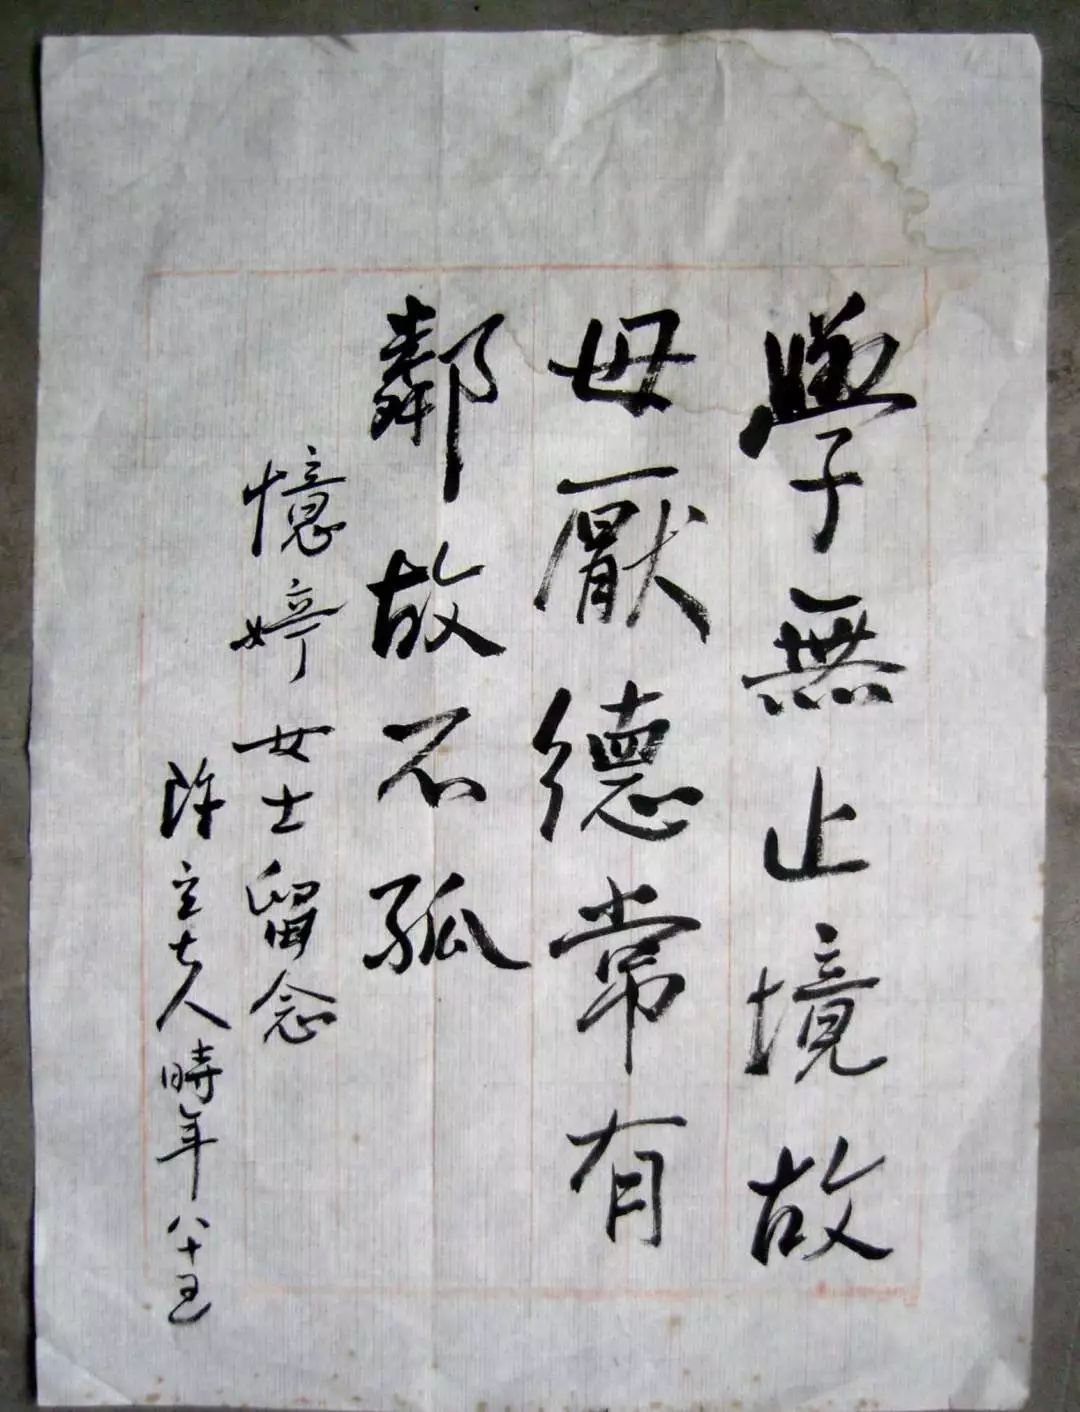 學無止境故
毋厭德常有
鄰故不孤
憶婷女士留念
陳立夫人時年八十五